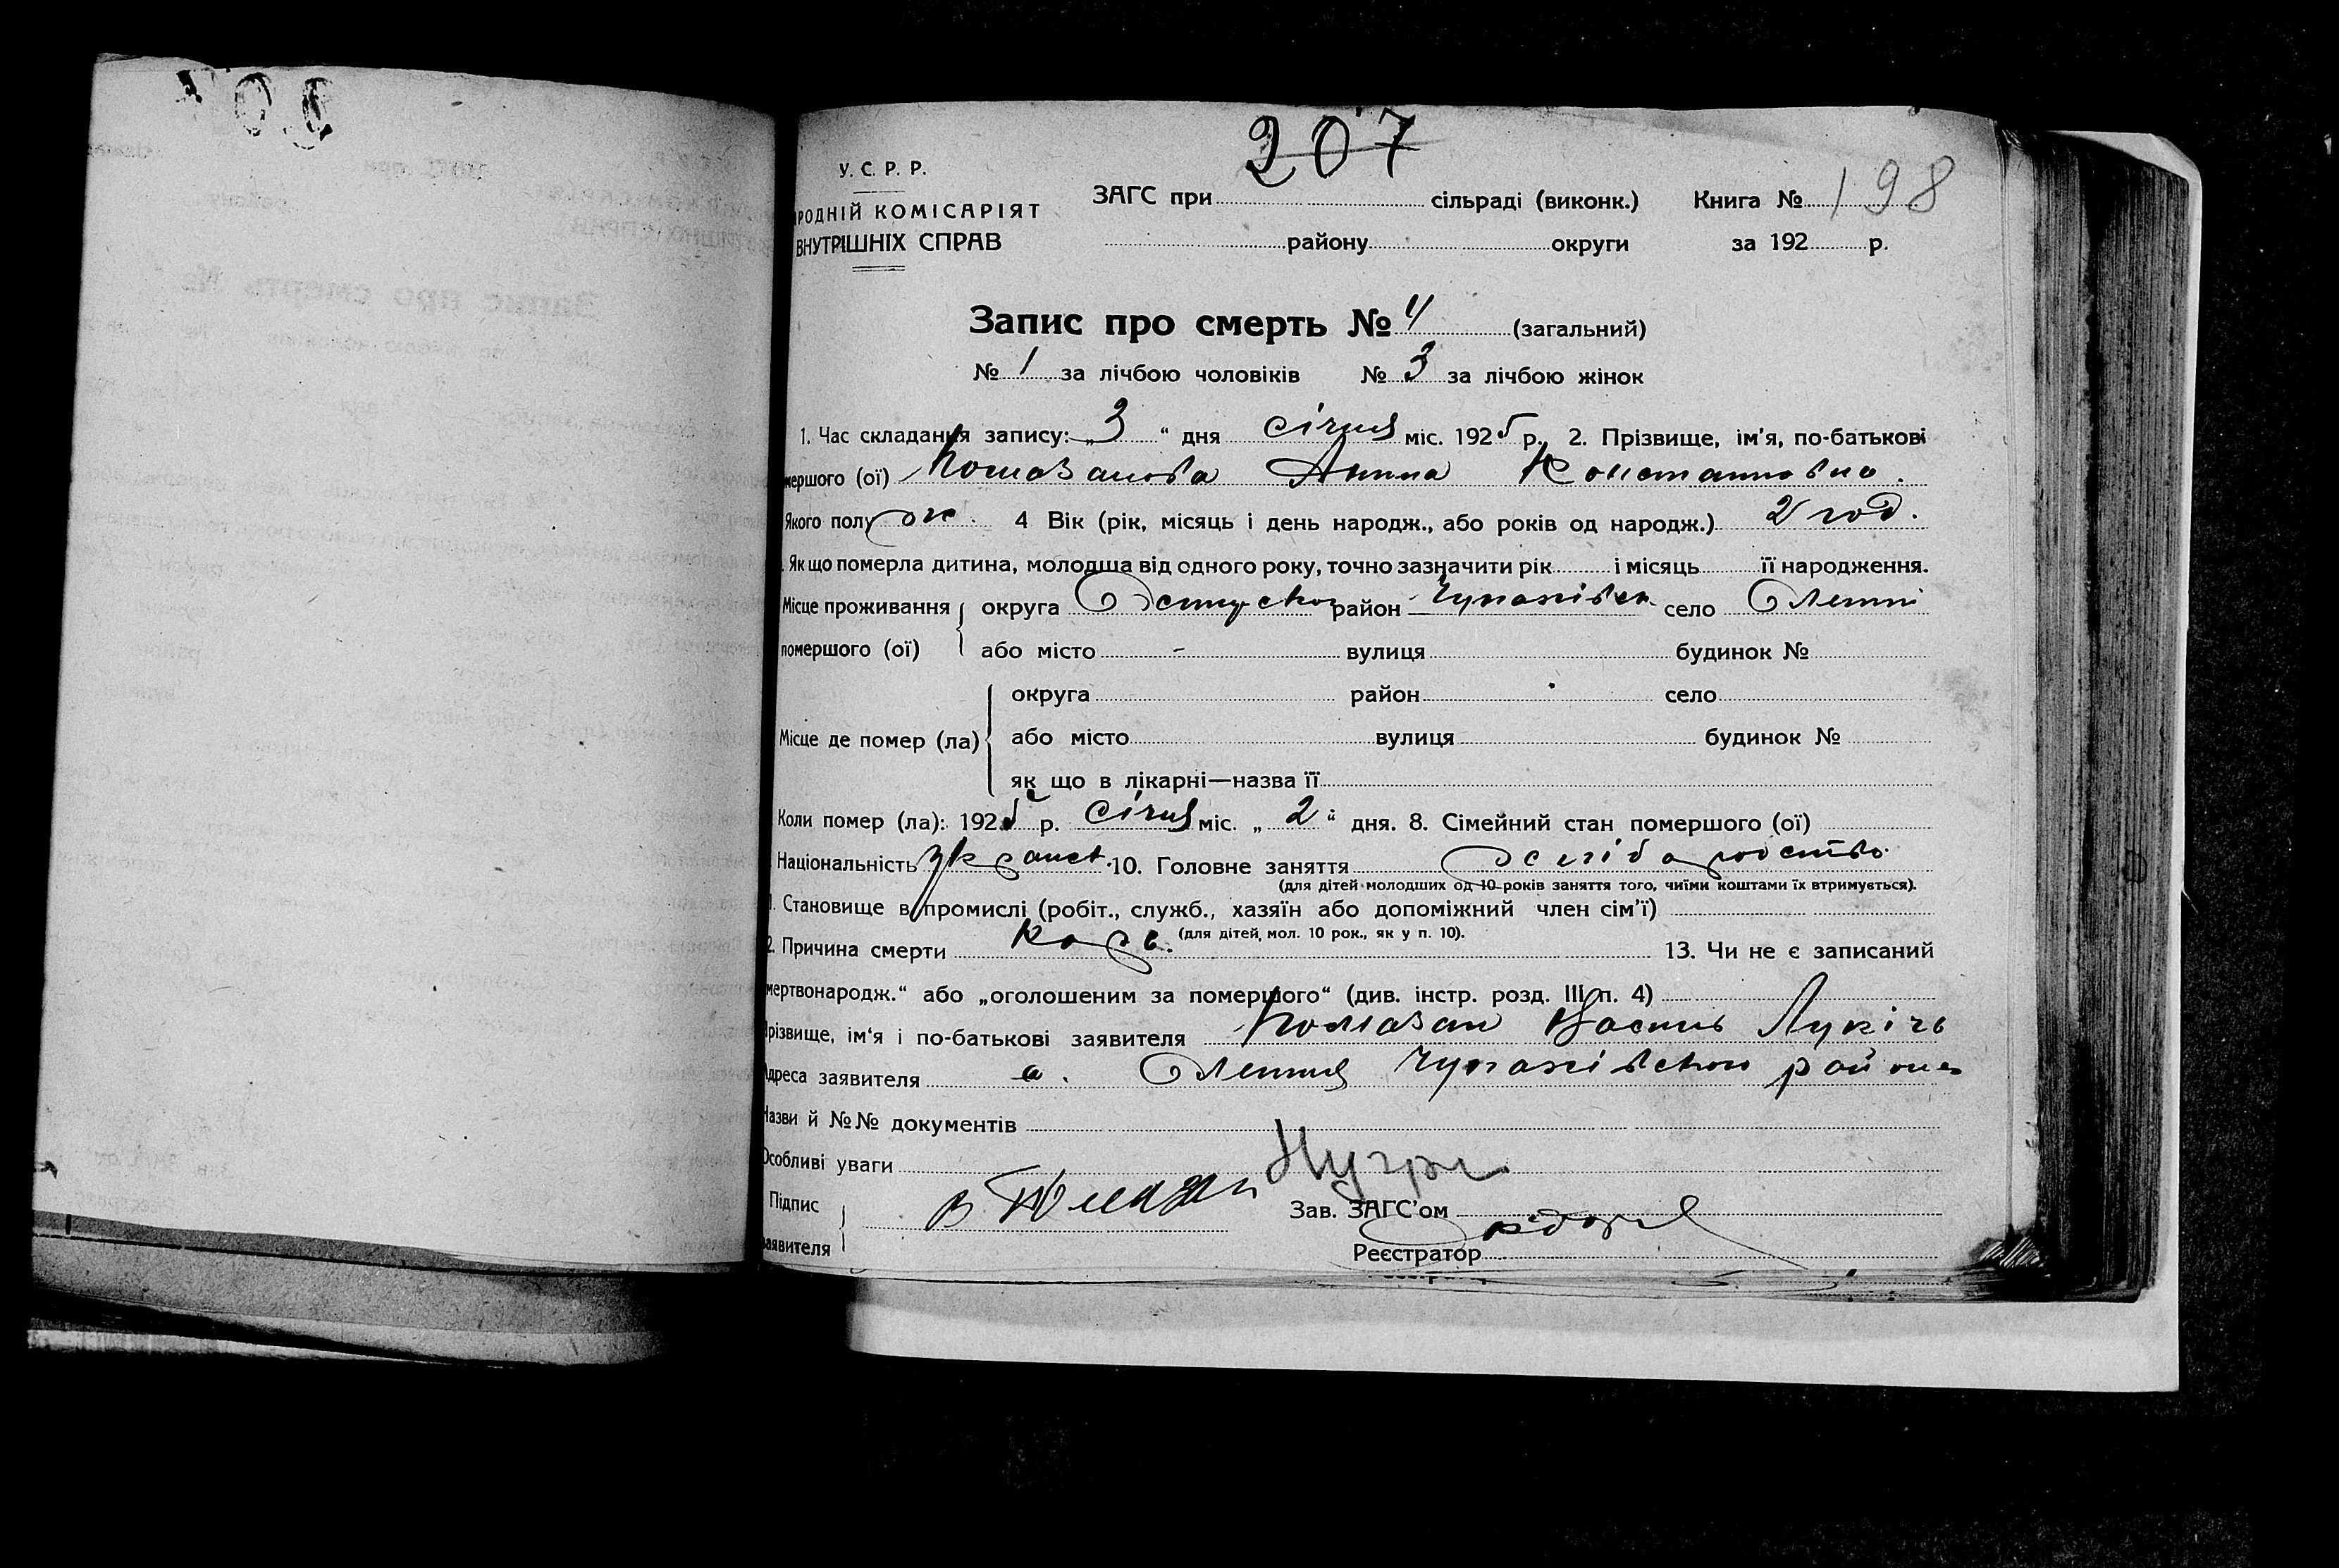 207
У. С. Р. Р.
РОДНІЙ КОМІСАРІЯТ
ВНУТРІШНІХ СПРАВ
ЗАГС при сільраді (виконк.) Книга № 198
району округи за 192 р.
Запис про смерть № 4 (загальний)
№ 1 за лічбою чоловіків № 3 за лічбою жінок
1. Час складання запису: „3“ дня січня міс. 1925 р. 2. Прізвище, ім'я, по-батькові
мершого (ої) Помазанова Анна Константовна.
Якого полу ж. 4 Вік (рік, місяць і день народж., або років од народж.) 2 год.
Як що померла дитина, молодша від одного року, точно зазначити рік і місяць її народження.
Місце проживання округа район село
помершого (ої) або місто - вулиця будинок №
округа район село
Місце де помер (ла) або місто вулиця будинок №
як що в лікарні—назва її
Коли помер (ла): 1925 р. січня міс. „2“ дня. 8. Сімейний стан помершого (ої)
Національність 10. Головне заняття
(для дітей молодших од 10 років заняття того, чиїми коштами їх втримується).
1. Становище в промислі (робіт., служб., хазяїн або допоміжний член сім'ї)
(для дітей, мол. 10 рок., як у п. 10).
2. Причина смерти Корь. 13. Чи не є записаний
мертвонародж.“ або „оголошеним за помершого“ (див. інстр. розд. III п. 4)
Прізвище, ім'я і по-батькові заявителя Помазан Василь Лукічь
Адреса заявителя с. району
Назви й №№ документів
Особливі уваги
Підпис
заявителя
В Помазан
Зав. ЗАГС'ом
Реєстратор